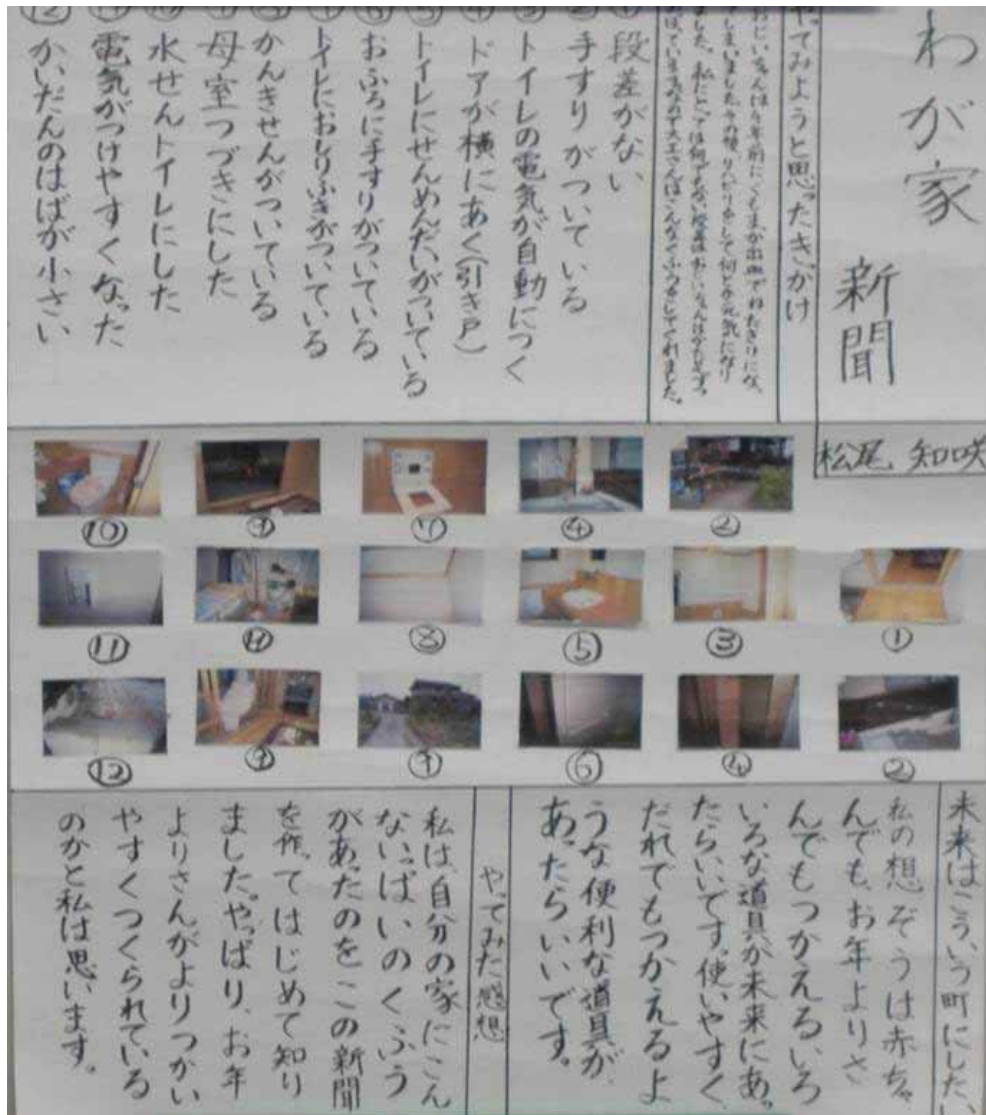 わが家
新聞
松尾 知咲
やってみようと思ったきかけ
おじいちゃんは
年前にくもまっか出血でねたきりにな
しまいました。その後、リハビリをして何とか元気になり
ました。私にとっては何でもない段差はおじいちゃんは
大工さんはこんなくふうをしてくれました。
① 段差がない
② 手すりがついている
③ トイレの電気が自動につく
④ ドアが横にあく(引き戸)
⑤ トイレにせんめんだいがついている
⑥ おふろに手すりがついている
⑦ トイレにおしりふきがついている
⑧ かんきせんがついている
⑨ 母室つづきにした
⑩ 水せんトイレにした
⑪ 電気がつけやすくなった
⑫ かいだんのはばが小さい
② ④ ⑦ ⑨ ⑩
① ③ ⑤ ⑧ ⑪
② ④ ⑥ ⑨ ⑫
未来はこういう町にしたい
私の想ぞうは赤ちゃ
んでも、お年よりさ
んでもつかえるいろ
いろな道具が未来にあっ
たらいいです。使いやすく
だれでもつかえるよ
うな便利な道具が、
あったらいいです。
やってみた感想
私は、自分の家にこん
ないっぱいのくふう
があったのをこの新聞
を作ってはじめて知り
ました。やっぱり、お年
よりさんがよりつかい
やすくつくられている
のかと私は思います。